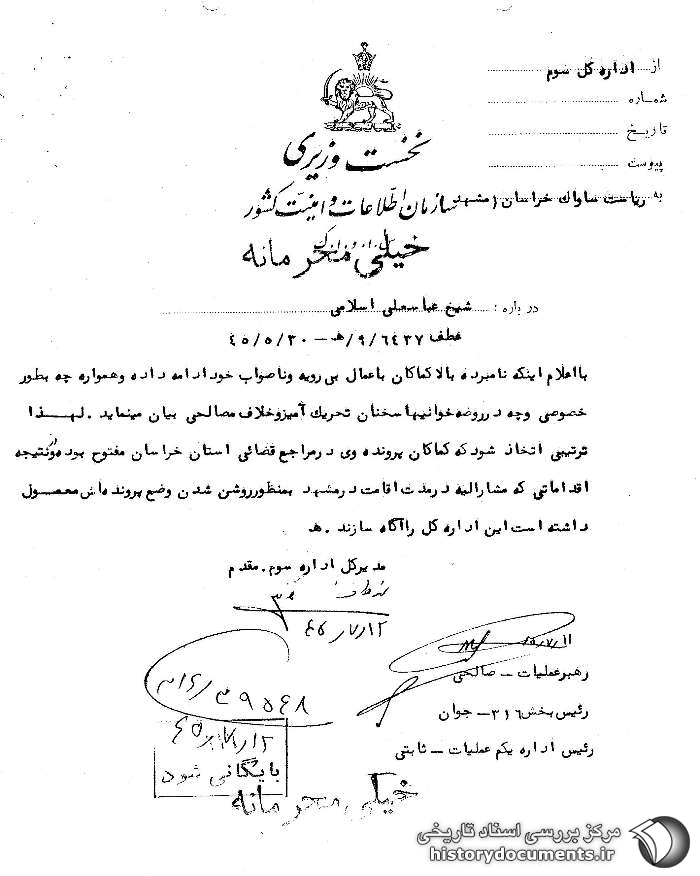 از اداره کل سوم
شماره
تاریخ
پیوست
نخست وزیری
سازمان اطلاعات و امنیت کشور
به ریاست ساواک خراسان (مشهد)
خیلی محرمانه
درباره : شیخ عباسعلی اسلامی
عطف ۹/۶۴۳۷/هـ - ۴۵/۵/۳۰
بااعلام اینکه نامبرده بالا کماکان باعمال بی رویه وناصواب خود ادامه داده وهمواره چه بطور
خصوصی وچه در روضه خوانیها سخنان تحریک آمیزوخلاف مصالحی بیان مینماید . لهذا
ترتیبی اتخاذ شود که کماکان پرونده وی در مراجع قضائی استان خراسان مفتوح بوده و نتیجه
اقداماتی که مشارالیه درمدت اقامت درمشهد بمنظور روشن شدن وضع پرونده اش معمول
داشته است این اداره کل راآگاه سازند . هـ
مدیرکل اداره سوم . مقدم
۴۵/۷/۱۲
۴۵/۷/۱۱
رهبرعملیات - صالحی
رئیس بخش ۳۱۶ - جوان
رئیس اداره یکم عملیات - ثابتی
۳۱۶/۳۹۵۴۸
۴۵/۷/۱۲
بایگانی شود
خیلی محرمانه
مرکز بررسی اسناد تاریخی
historydocuments.ir